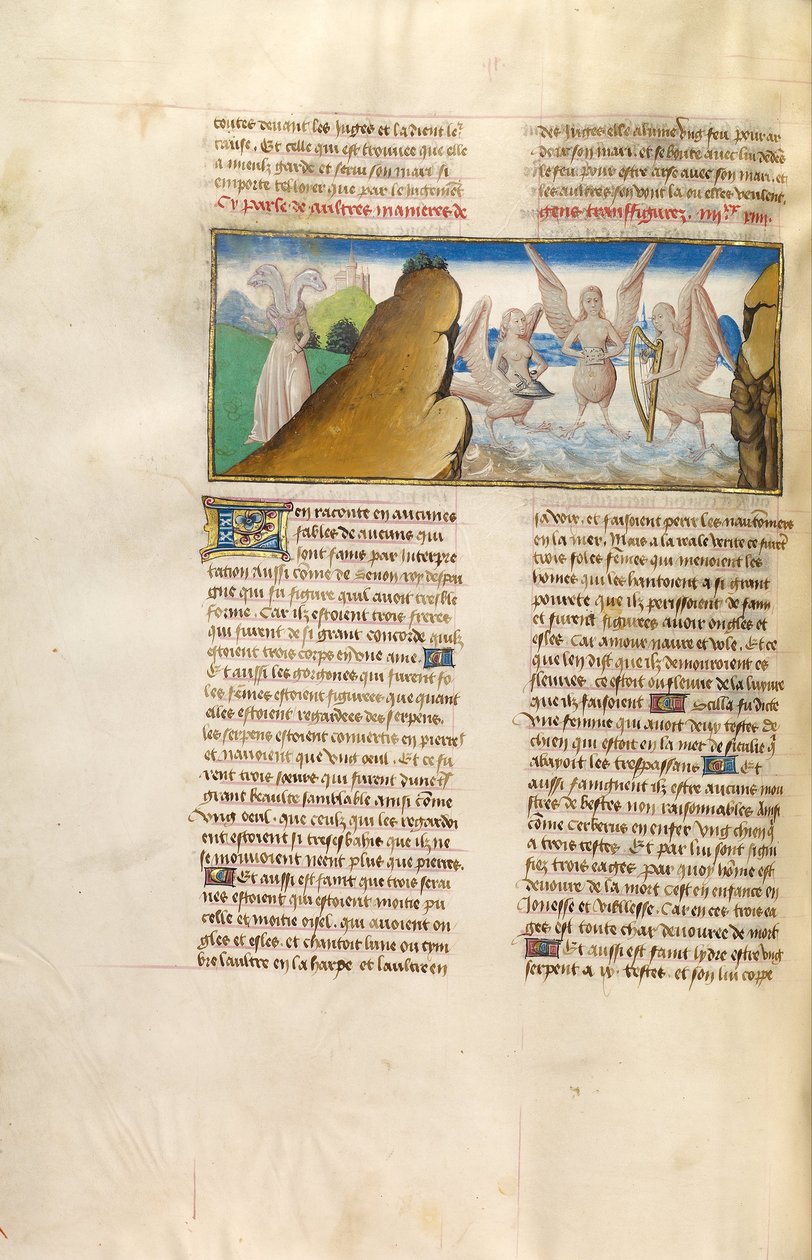 toutes devant les Juges et la dient le²
cause. Et celle qui est trouvee que elle
a mieulz garde et servi son mari si
emporte tellorer que par le Jugement
Cy parle de aultres manieres de
des Juges elle alume ung feu pour ar
doir son mari. et se boute avec lui dedẽs
le feu pour estre arse avec son mari. et
les aultres sen vont la ou elles veulent.
gens transfigurez. iiii
en raconte en aucunes
fables de aucuns qui
sont fains par Interpre
tation Aussi cõme de Senon roy despai
gne qui fu figure quil avoit treible
forme. Car ilz estoient trois freres
qui furent de si grant concorde quilz
estoient trois corps en une ame.
Et aussi les gorgones qui furent fo
les fẽmes estoient figurees que quant
elles estoient regardees des serpens.
les serpens estoient convertis en pierres
et navoient que ung oeul. Et ce fu
rent trois soeurs qui furent dune tˢ
grant beaulte samblable ainsi cõme
ung oeul. que ceulz qui les regardoi
ent estoient si tresesbahis que ilz ne
se mouvoient neent plus que pierres.
Et aussi est faint que trois serai
nes estoient qui estoient moitie pu
celle et moitie oisel. qui avoient on
gles et esles. et chantoit lune ou tym
bre laultre en la harpe et laultre en
la voix. et faisoient perir les nautonniers
en la mer. Mais a la reale verite ce furẽt
trois foles fẽmes qui menoient les
hõmes qui les hantoient a si grant
povrete que ilz perissoient de faim
et furent figurees avoir ongles et
esles. Car amour navre et vole. Et ce
que len dist que ilz demouroient es
fleuves. ce estoit ou fleuve de la luxure
que ilz faisoient Scilla fu dicte
une femme qui avoit deux testes de
chien qui estoit en la mer de sicilie q̃
abayoit les trespassans Et
aussi faingnent ilz estre aucuns mon
stres de bestes non raisonnables Ainsi
cõme Cerberus en enfer ung chien q̃
a trois testes. Et par lui sont signi
fiez trois eages par quoy hõme est
devoure de la mort Cest en enfance en
Jonesse et viellesse. Car en ces trois ea
ges est toute char devouree de mort
Et aussi est faint lydre estre ung
serpent a ix. testes. et son lui coppe